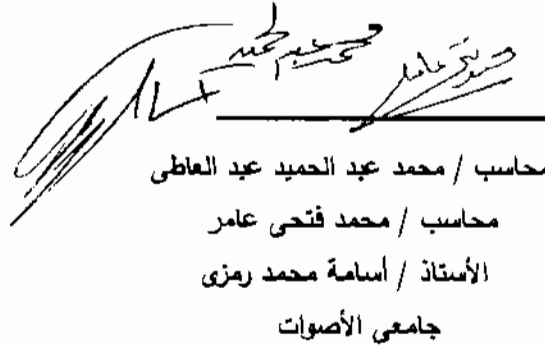 محمد عبد الحميد
محاسب / محمد عبد الحميد عبد العاطى
محاسب / محمد فتحى عامر
الأستاذ / أسامة محمد رمزى
جامعى الأصوات